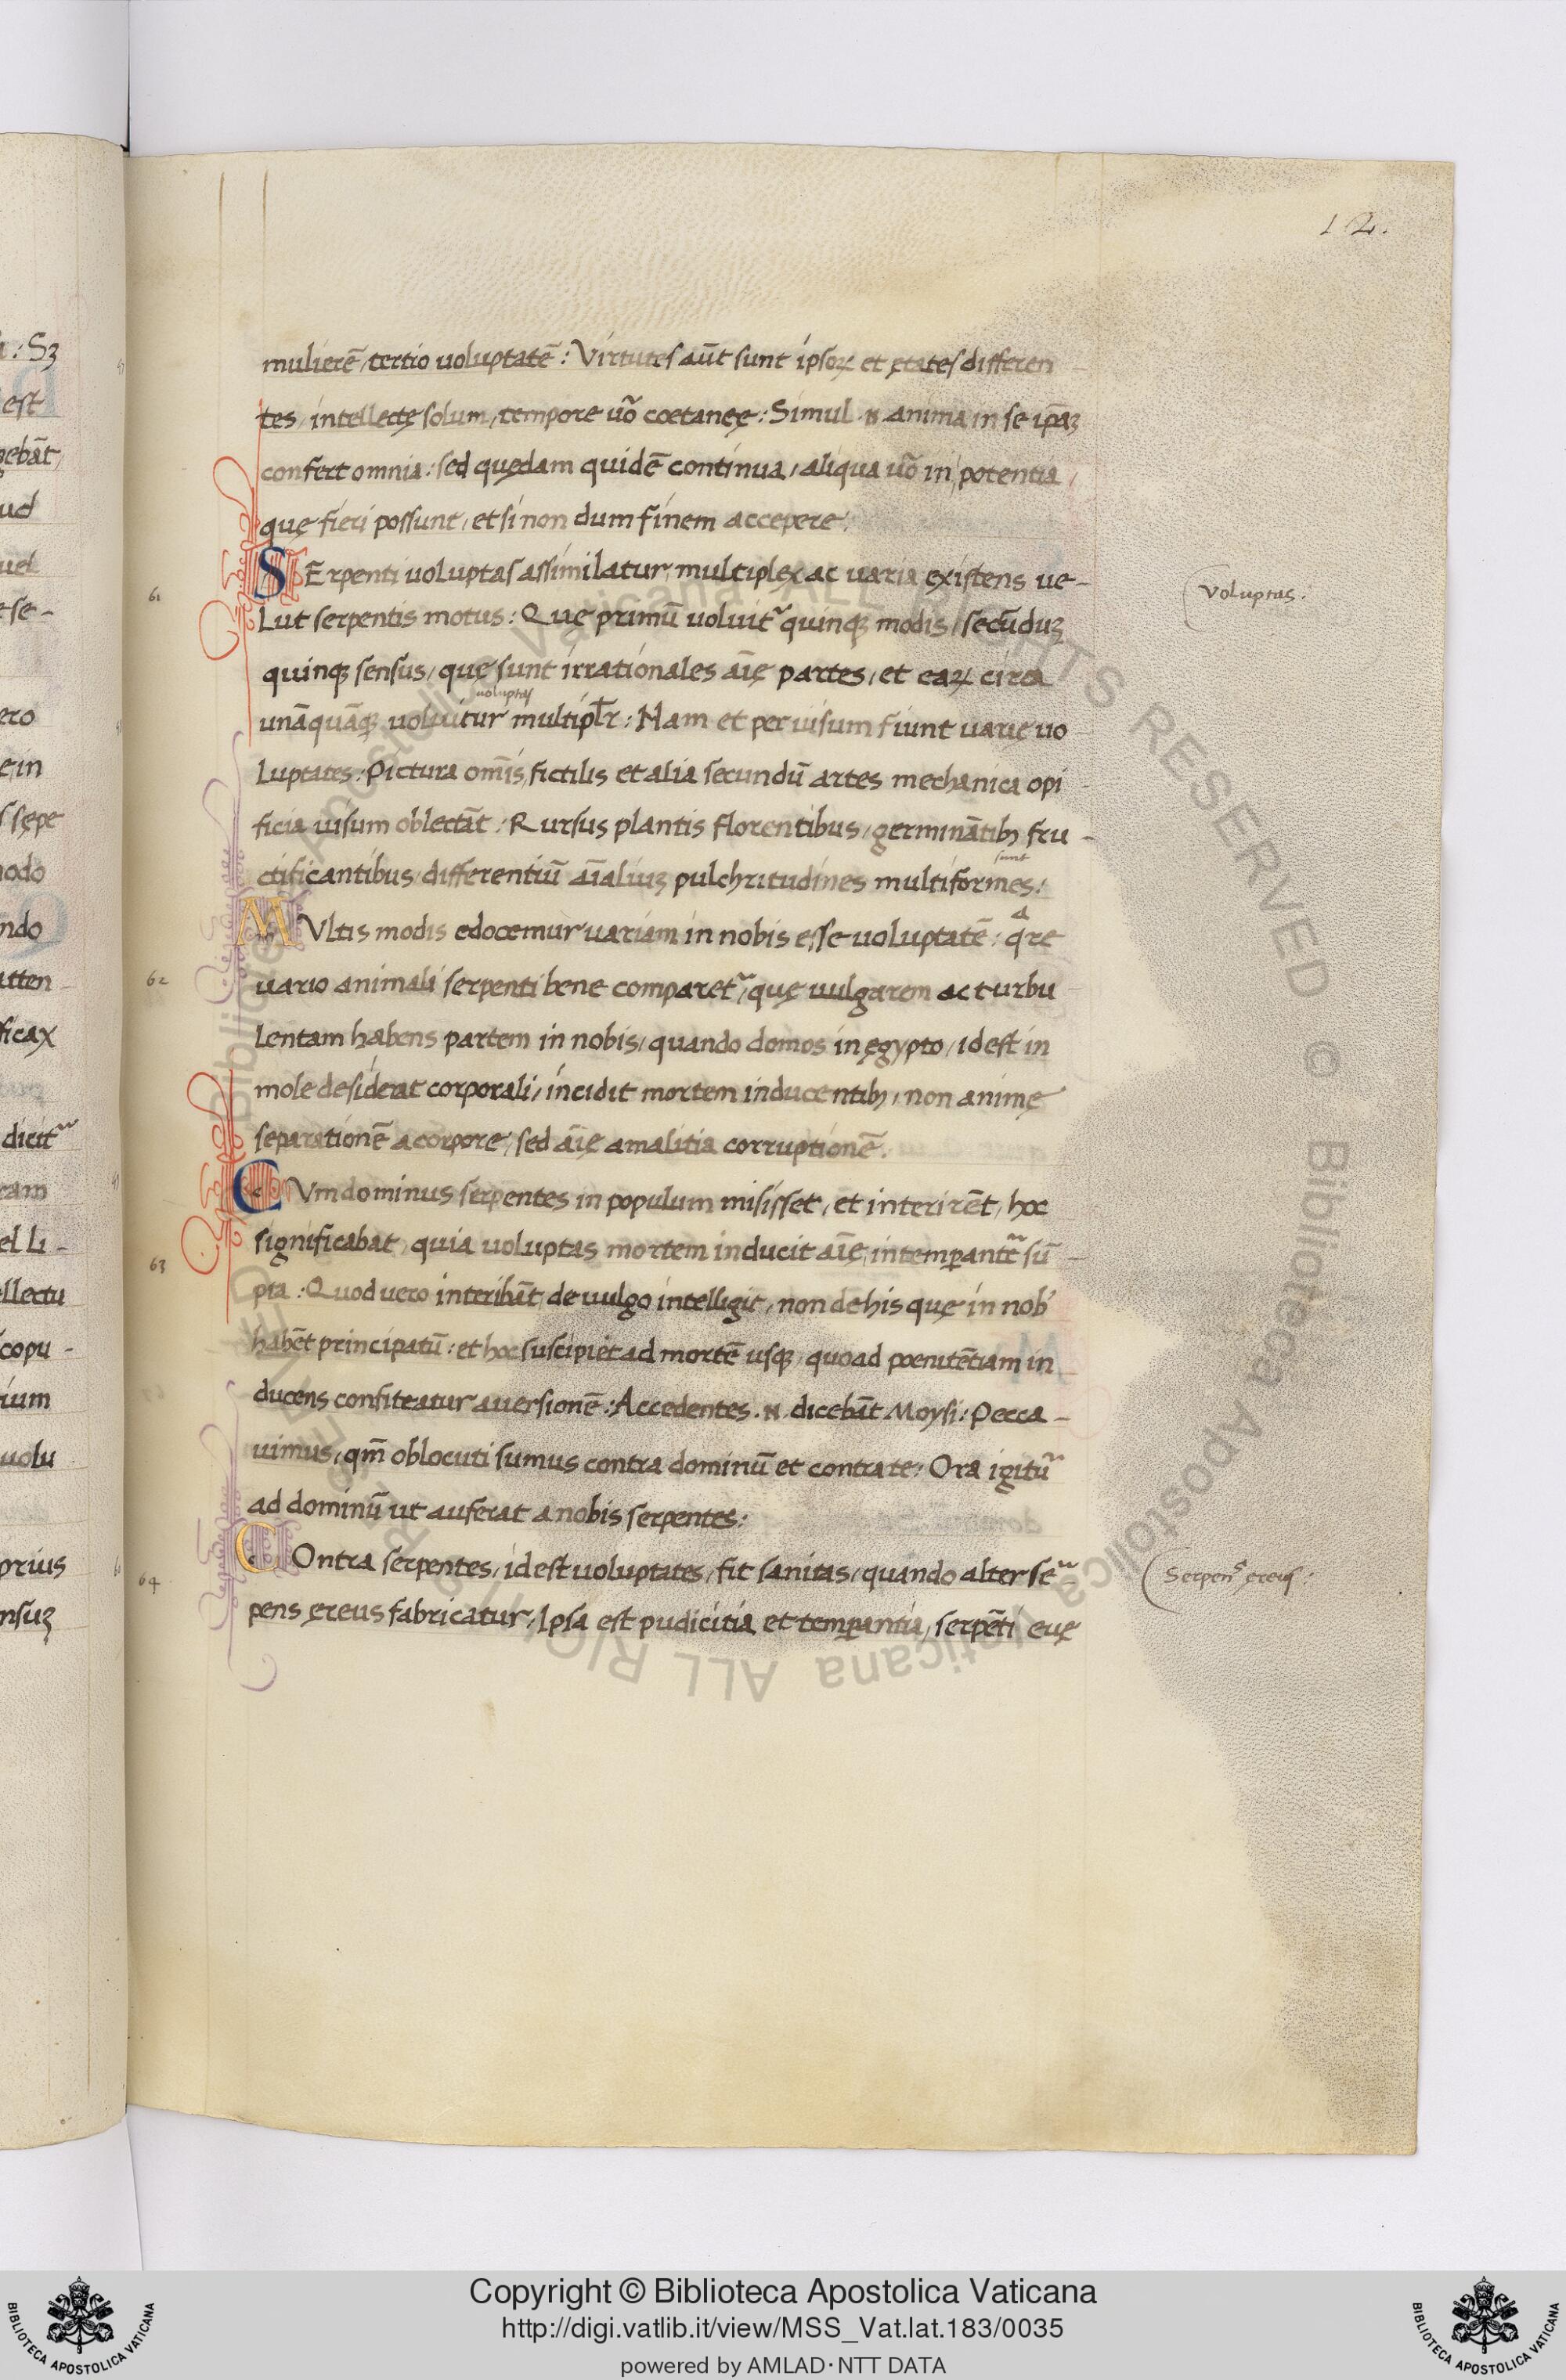 12.
mulierē, tertio uoluptatē: Virtutes aūt sunt ipsoꝝ et ętates differen
tes, intellectę solum, tempore uō coetanęę: Simul .n. anima in se ip̄aȝ
confert omnia: sed quędam quidē continua, aliqua uō in potentia,
quę fieri possunt, et si non dum finem accepere.
61
SErpenti uoluptas assimilatur, multiplex ac uaria existens ue-
Voluptas.
lut serpentis motus: Que primū uoluit᷑ quinqȝ modis, secūduȝ
quinqȝ sensus, quę sunt irrationales aīę partes, et eaꝝ circa
uoluptas
unāquāqȝ uoluitur multipl̄r: Nam et per uisum fiunt uarię uo
luptates: Pictura om̄is, fictilis et alia secundū artes mechanica opi
ficia uisum oblectāt: Rursus plantis florentibus, germinātibȝ fru-
sunt
ctificantibus, differentiū aīaliuȝ pulchritudines multiformes:
MVltis modis edocemur uariam in nobis esse uoluptatē: qͣre
62
uario animali serpenti bene comparet᷑, quę uulgarem ac turbu
lentam habens partem in nobis, quando domos in ęgypto, id est in
mole desiderat corporali, incidit mortem inducentibȝ, non animę
separationē a corpore, sed aīę a malitia corruptionē.
CVm dominus serpentes in populum misisset, et interirēt, hoc
63
significabat, quia uoluptas mortem inducit aīę, intemꝑant᷑ sū-
pta: Quod uero interibāt, de uulgo intelligit, non de his quę in nob'
habēt principatū: et hoc suscipiet ad mortē usqȝ, quoad poenitētiam in
ducens confiteatur auersionē: Accedentes .n. dicebāt Moysi: Pecca-
uimus, qm̄ oblocuti sumus contra dominū et contra te: Ora igitu᷑
ad dominū ut auferat a nobis serpentes:
64
COntra serpentes, id est uoluptates, fit sanitas, quando alter se᷑-
Serpenˢ ęreus:
pens ęreus fabricatur, Ipsa est pudicitia et temꝑantia, serpēti euę
Copyright © Biblioteca Apostolica Vaticana
http://digi.vatlib.it/view/MSS_Vat.lat.183/0035
powered by AMLAD·NTT DATA
BIBLIOTECA APOSTOLICA VATICANA
BIBLIOTECA APOSTOLICA VATICANA